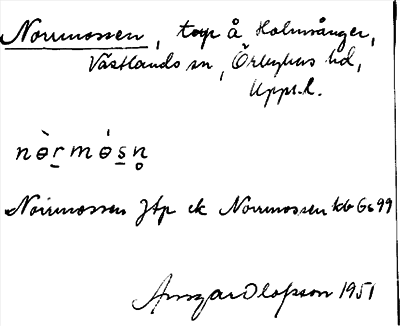 Norrmossen, torp å Holmsånger,
Västlands sn, Örbyhus hd,
Uppl.
nɵ̀r̲mɵ́s̲n̥
Norrmossen Jtp ek Norrmossen kb Gs 99
Ansgar Olofsson 1951